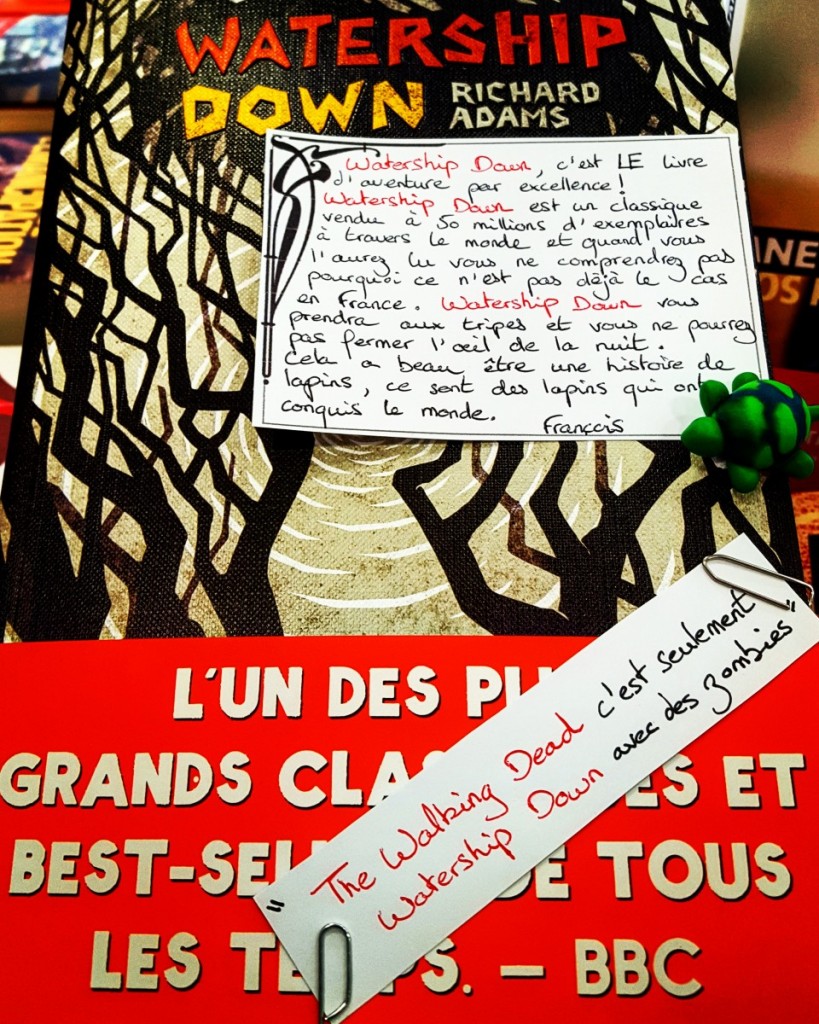 WATERSHIP
DOWN RICHARD
ADAMS
Watership Down, c'est LE livre
d'aventure par excellence!
Watership Down est un classique
vendu à 50 millions d'exemplaires
à travers le monde et quand vous
l'aurez lu vous ne comprendrez pas
pourquoi ce n'est pas déjà le cas
en France. Watership Down vous
prendra aux tripes et vous ne pourrez
pas fermer l'œil de la nuit.
Cela a beau être une histoire de
lapins, ce sont des lapins qui ont
conquis le monde.
François
"The Walking Dead c'est seulement
Watership Down avec des zombies"
L'UN DES PLU
GRANDS CLA ES ET
BEST-SEL DE TOUS
LES TEMPS. – BBC